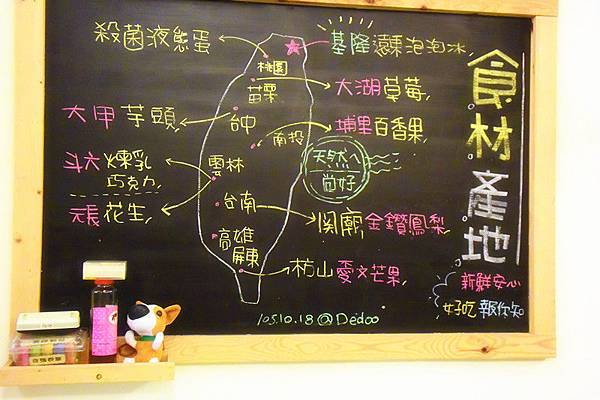 食材產地
殺菌液態蛋
基隆 濃果泡泡冰
桃園
大湖草莓
苗栗
大甲芋頭
台中
埔里百香果
南投
天然ㄟ
尚好
斗六 煉乳
巧克力
雲林
元長花生
台南
関廟 金鑽鳳梨
高雄
屏東
枋山愛文芒果
新鮮安心
好吃 報你知
105.10.18@Dedoo